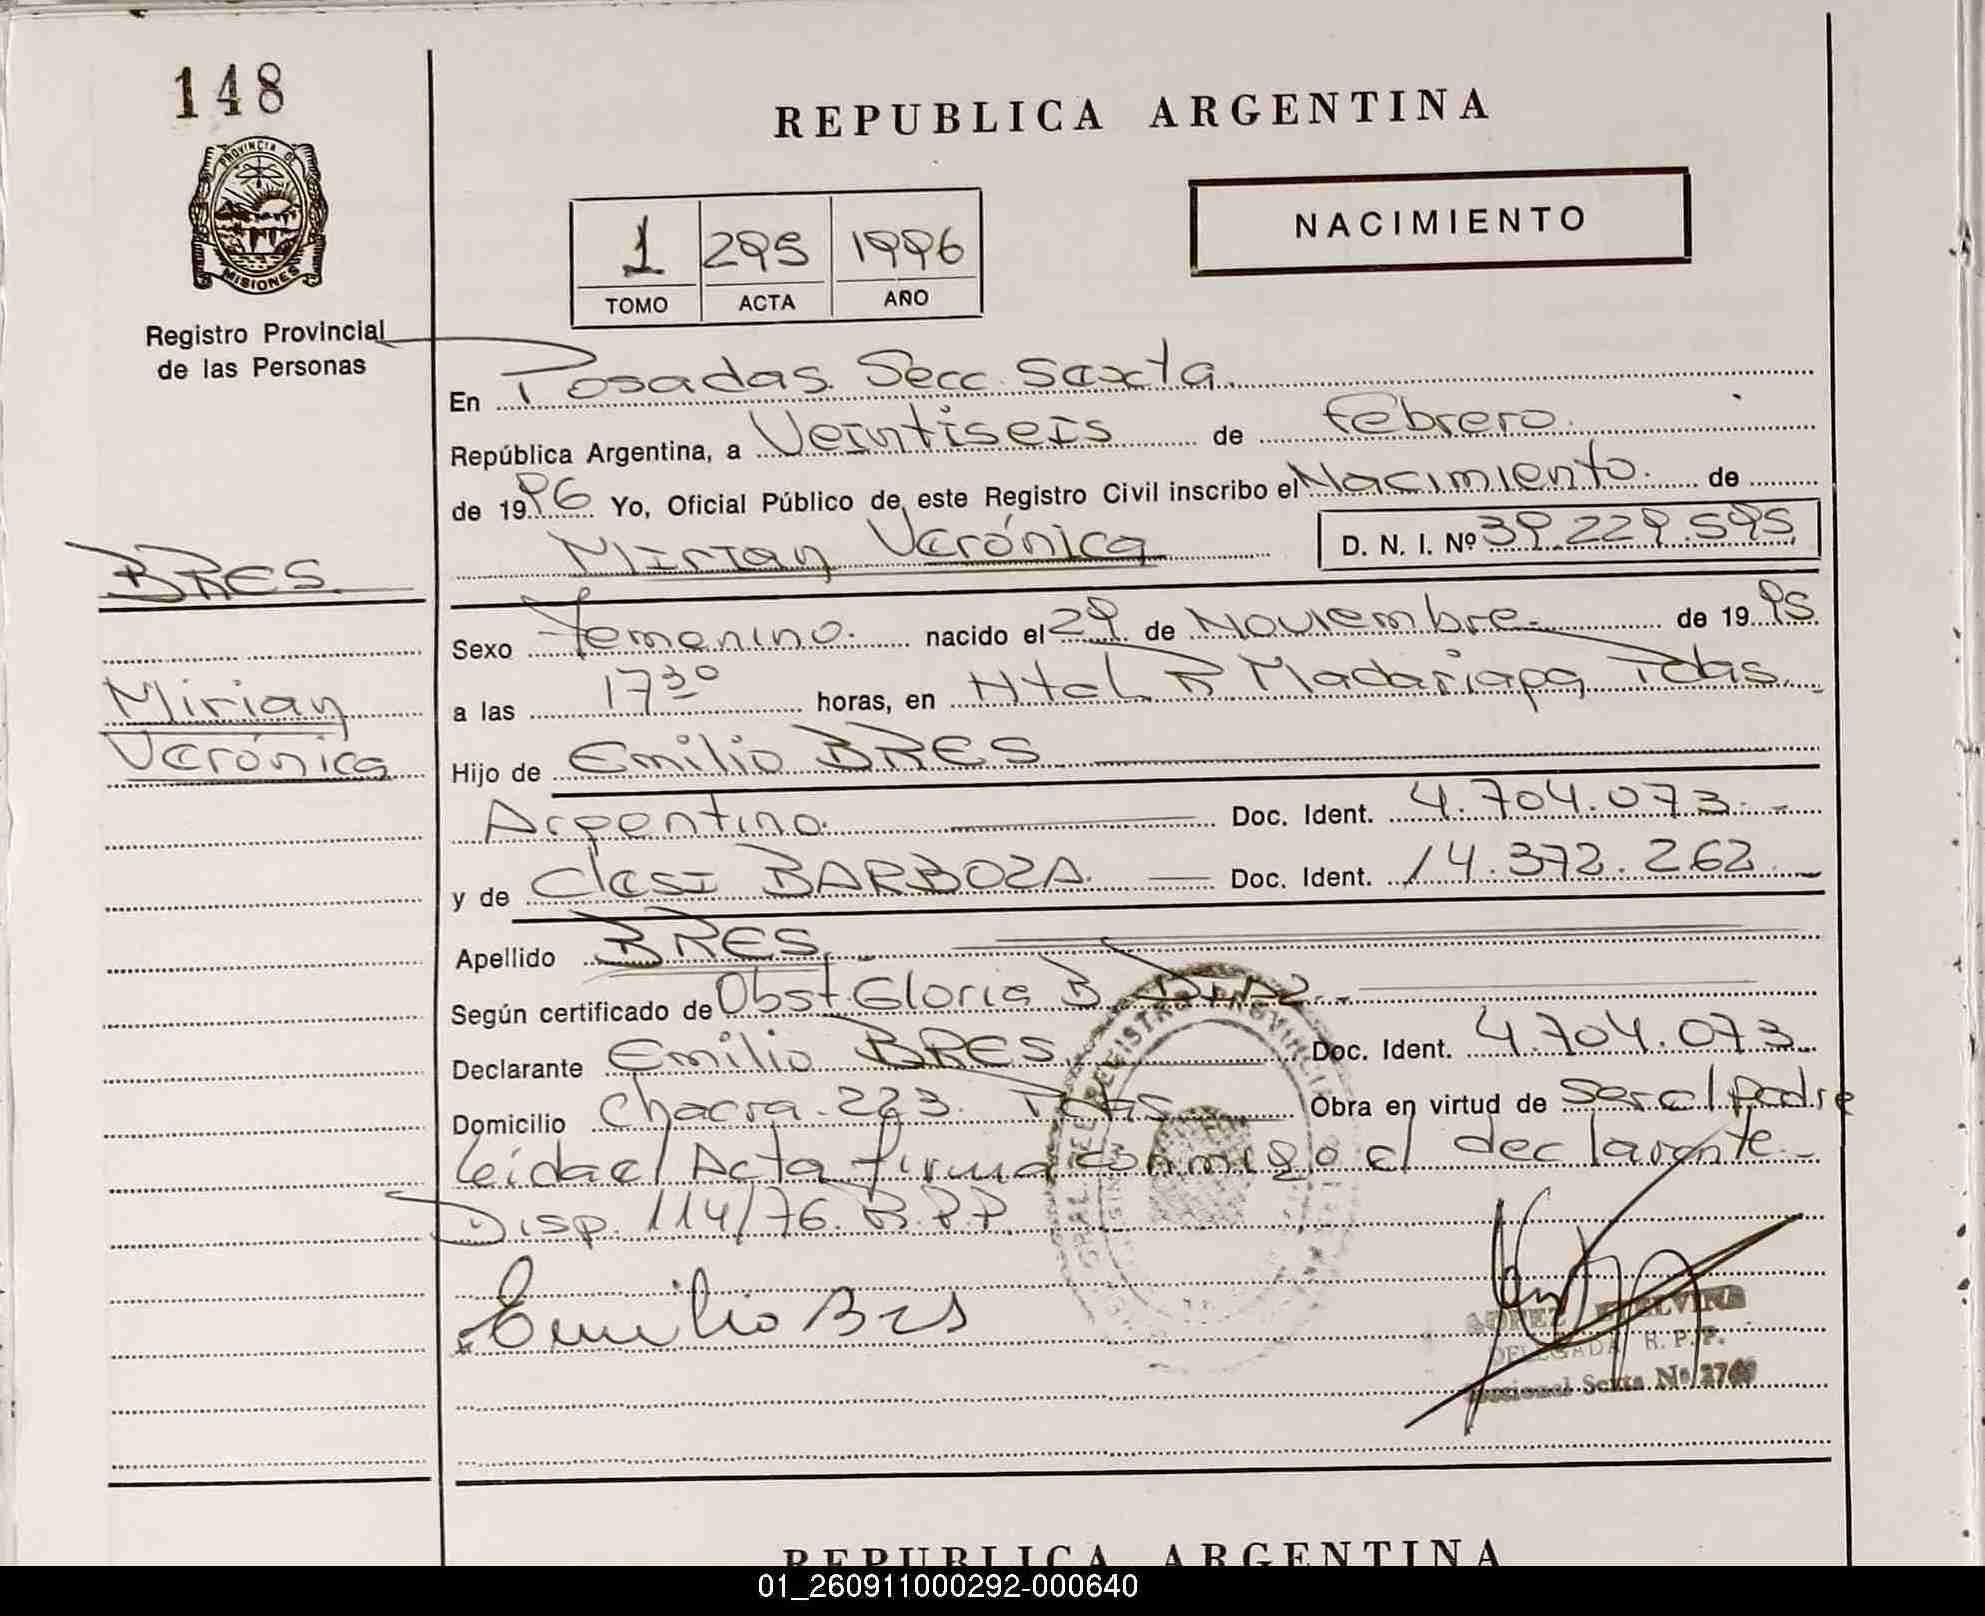 148
PROVINCIA DE
MISIONES
Registro Provincial
de las Personas
REPUBLICA ARGENTINA
NACIMIENTO
1 295 1996
TOMO ACTA AÑO
En Posadas. Secc. Sexta.
República Argentina, a Veintiseis de febrero.
de 1996 Yo, Oficial Público de este Registro Civil inscribo el Nacimiento. de
Mirian Verónica D. N. I. Nº 39.229.595
BRES.
Sexo femenino. nacido el 29 de Noviembre. de 1995
Mirian
Verónica
a las 17³⁰ horas, en Htal. R Madariaga Pdas.
Hijo de Emilio BRES
Argentino. Doc. Ident. 4.704.073.-
y de Clesi BARBOZA. Doc. Ident. 14.372.262.
Apellido BRES
Según certificado de Obst. Gloria B. DIAZ.-
Declarante Emilio BRES. Doc. Ident. 4.704.073
Domicilio Chacra. 223. Pdas Obra en virtud de ser el padre
leida el Acta firma conmigo el declarante.-
Disp. 114/76. R.P.P.
Emilio Bres
ETELVINA
DELEGADA R. P. P.
Seccional Sexta Nº 2769
REGISTRO PROVINCIAL
REPUBLICA ARGENTINA
01_260911000292-000640